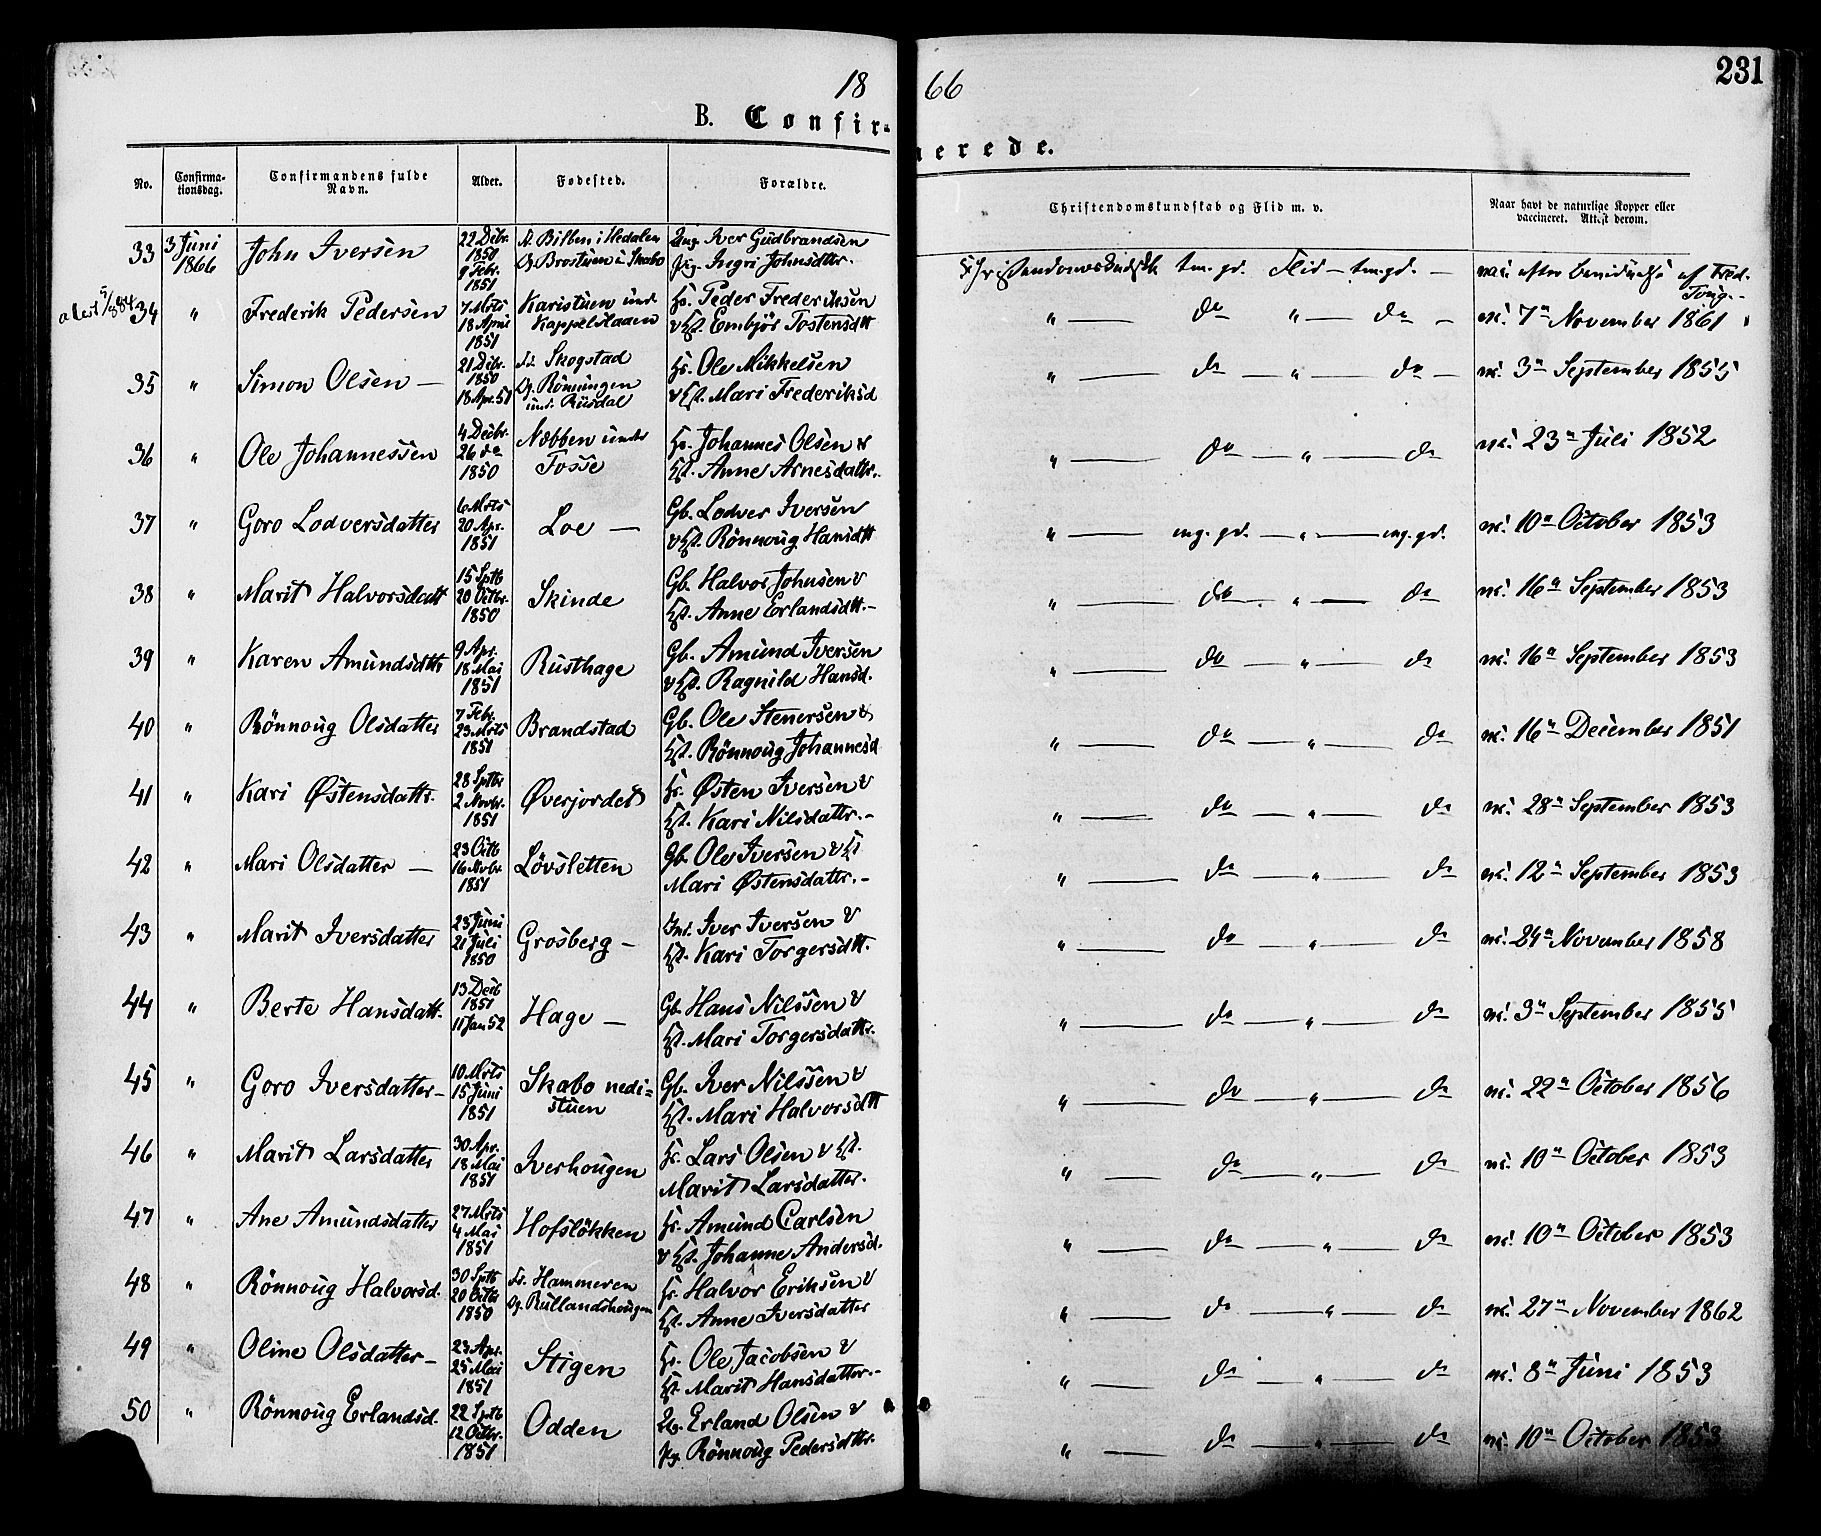 18 66
231
B. Confir-
merede.
No. Confirma-tionsdag. Confirmandens fulde Navn. Alder. Fødested. Forældre. Christendomskundskab og Flid m. v. Naar havt de naturlige Kopper eller vaccineret. Attest derom.
33 3 Juni 1866 John Iversen 22 Decbr. 1850 9 Febr. 1851 Bilben i Hedalen Brostuen i Skabo Ung. Iver Gudbrandsen Pig. Ingri Johnsdttr. Christendomskundskb tm. gd. Flid – tm. gd. – vac. efter af Fred. Tong.
attest 5/5 84 34 " Frederik Pedersen 7 Mrts 18 April 1851 Karistuen und. Kappelslaaen Hs. Peder Frederiksen v Hst. Embjør Tostensdtt " do " do – vc. 7de November 1861
35 " Simon Olsen – 21 Dcbr. 1850 18 Apr. 51 Fr. Skogstad Og. Rønningen und. Rusdal Hs. Ole Mikkelsen v Hst. Mari Frederiksd " do " do – vc. 3de September 1855
36 " Ole Johannessen 4 Decbr. 26 do 1850 Nebben under Fosse Hs. Johannes Olsen v Hst. Anne Arnesdattr. " do " do vc. 23de Juli 1852
37 " Goro Lodversdatter 6 Mrts 20 Apr. 1851 Loe – Gb. Lodver Iversen v Hst. Rønnoug Hansdtt " mg. gd. " mg. gd. vc. 10de October 1853
38 " Marit Halvorsdatt 15 Sptb 20 Octbr. 1850 Skinde Gb. Halvor Johnsen v Hst. Anne Erlandsdtt. – " do " do vc. 16de September 1853
39 " Karen Amundsdttr 9 Apr. 18 Mai 1851 Rusthage Gb. Amund Iversen v Hst. Ragnild Hansd. " do " do vc. 16de September 1853
40 " Rønnoug Olsdatter 7 Febr. 23 Mrts 1851 Brandstad Gb. Ole Stenersen v Hst. Rønnoug Johannesd " do " do vc. 16de December 1851
41 " Kari Østensdattr. 28 Sptbr 2 Novbr. 1851 Øverjordet Hs. Østen Iversen v Hst. Kari Nilsdattr. – " do " do vc. 28de September 1853
42 " Mari Olsdatter – 23 Octb 16 Novbr. 1851 Løvsletten Gb. Ole Iversen v Hst Mari Østensdattr. – " do " do vc. 12te September 1853
43 " Marit Iversdatter 23 Juni 21 Juli 1850 Grosberg – Ind. Iver Iversen v Hst. Kari Torgersdtt. " do " do vc. 24de November 1858
44 " Berte Hansdatt. 13 Decb 1851 11 Jan 52 Hage – Gb. Hans Nilssen v Hst. Mari Torgersdattr. " do " do vc. 3de September 1855
45 " Goro Iversdatter – 10 Mrts 15 Juni 1851 Skabo nedi-stuen Gb. Iver Nilssen v Hst. Mari Halvorsdtt " do " do vc. 22de October 1856
46 " Marit Larsdatter 30 Apr. 18 Mai 1851 Iverhougen Hs. Lars Olsen v Hst. Marit Larsdatter. " do " do vc. 10de October 1853
47 " Ane Amundsdatter 27 Mrts 4 Mai 1851 Hofsløkken Hs. Amund Carlsen v Hst. Johanne Andersd. " do " do vc. 10de October 1853
48 " Rønnoug Halvorsd. 30 Sptb 20 Octbr 1850 Fr. Hammeren Og. Rullandshougen Hs. Halvor Eriksen v Hst. Anne Iversdatter " do " do vc. 27de November 1862
49 " Oline Olsdatter – 23 Apr. 25 Mai 1851 Stigen Hs. Ole Jacobsen v Hst. Marit Hansdatter. – " do " do vc. 8de Juni 1853
50 " Rønnoug Erlandsd. 22 Sptb 12 Octbr. 1851 Odden Erland Olsen v Pg. Rønnoug Pedersdttr. " do " do vc. 10de October 1853